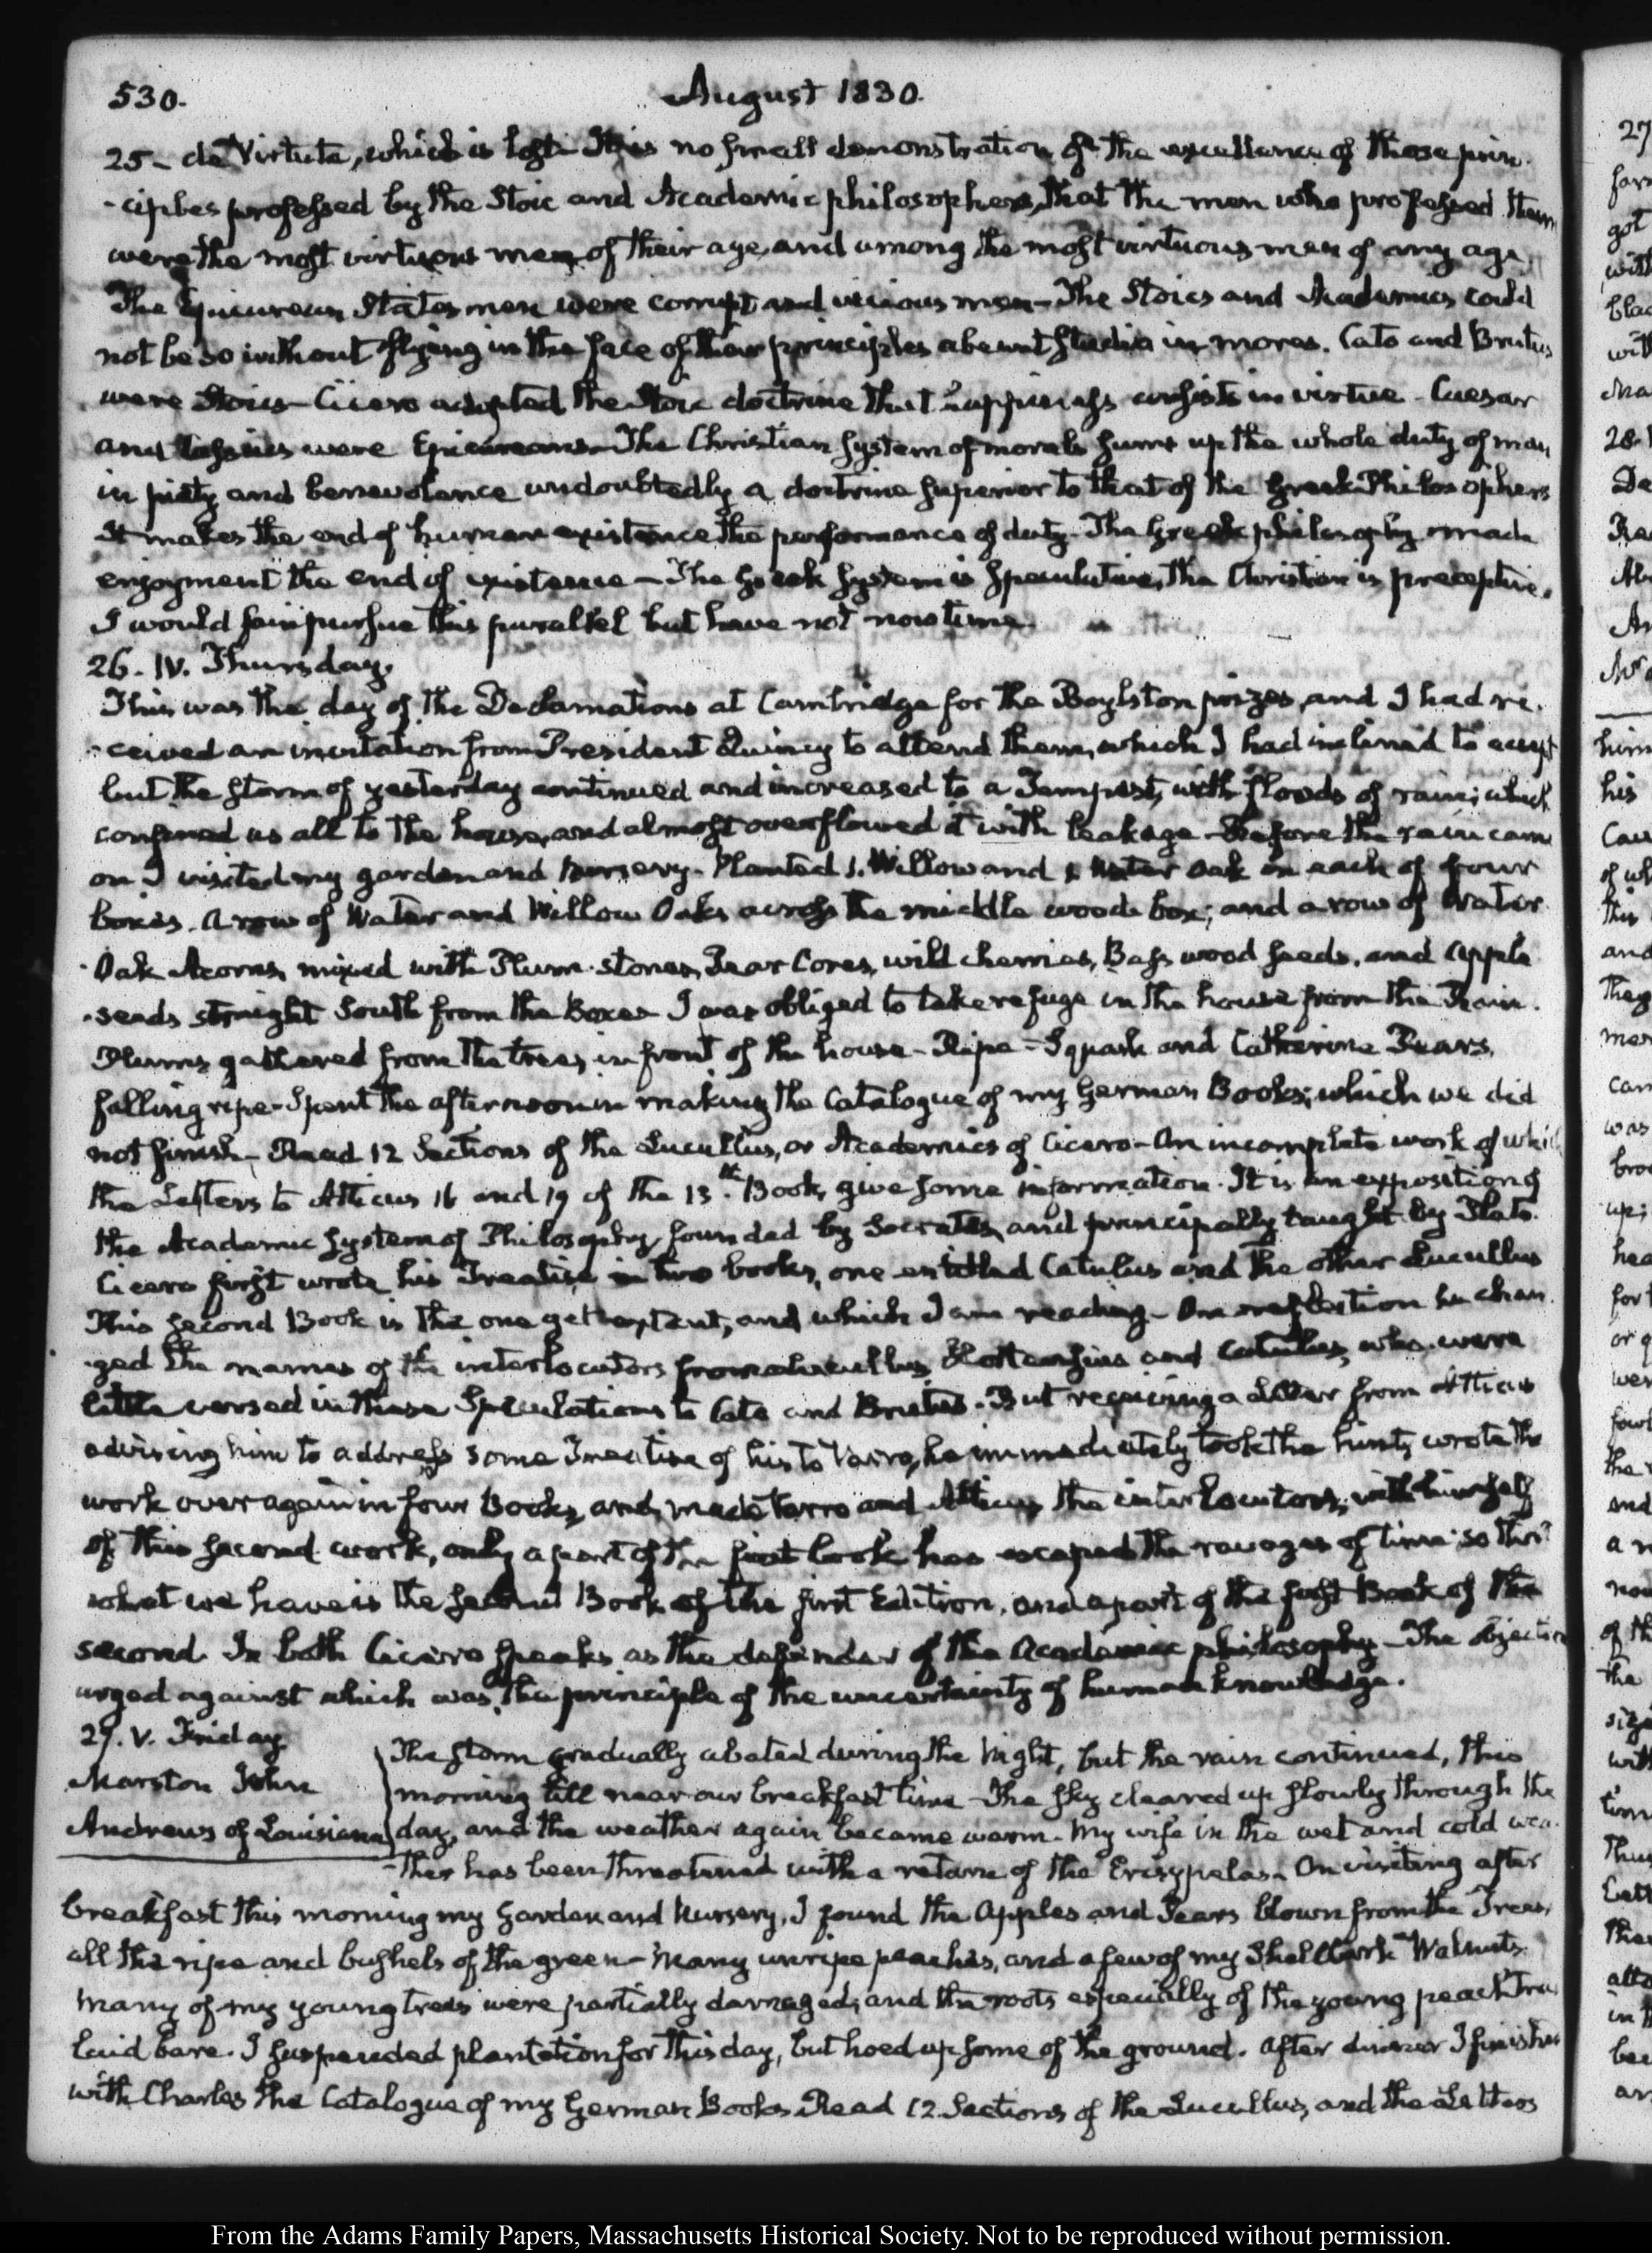 530.
August 1830.
25- de Virtute, which is lost. It is no small demonstration of the excellence of those prin-
-ciples professed by the Stoic and Academic philosophers, that the men who professed them
were the most virtuous men of their age, and among the most virtuous men of any age.
The Epicurean Statesmen were corrupt and vicious men- The Stoics and Academics could
not be so without flying in the face of their principles abeunt studia in mores. Cato and Brutus
were Stoics- Cicero adopted the Stoic doctrine that happiness consists in virtue- Caesar
and Cassius were Epicureans- The Christian system of morals sums up the whole duty of man
in piety and benevolence undoubtedly a doctrine superior to that of the Greek Philosophers
It makes the end of human existence the performance of duty- The Greek philosophy made
enjoyment the end of existence- The Greek System is speculative, the Christian is preceptive.
I would fain pursue this parallel but have not now time.
26. IV. Thursday.
This was the day of the Declamations at Cambridge for the Boylston prizes, and I had re-
-ceived an invitation from President Quincy to attend them, which I had inclined to accept
but the storm of yesterday continued and increased to a Tempest, with floods of rain; which
confined us all to the house, and almost overflowed it with leakage- Before the rain came
on I visited my garden and Nursery- Planted 1. Willow and 1 Water Oak in each of four
boxes. A row of Water and Willow Oaks across the middle woods box; and a row of Water
Oak Acorns, mixed with Plum-stones, Pear Cores, wild cherries, Bass wood seeds, and Apple
-seeds straight South from the Boxes- I was obliged to take refuge in the house from the Rain.
Plums gathered from the trees in front of the house- Ripe- Squash and Catherine Pears,
falling ripe- Spent the afternoon in making the Catalogue of my German Books; which we did
not finish- Read 12 Sections of the Lucullus, or Academics of Cicero- An incomplete work of which
the Letters to Atticus 16 and 19 of the 13th. Book, give some information. It is an exposition of
the Academic System of Philosophy, founded by Socrates, and principally taught by Plato.
Cicero first wrote his Treatise in two books, one entitled Catulus and the other Lucullus
This second Book is the one yet extant, and which I am reading- On reflection he chan-
-ged the names of the interlocutors from Lucullus, Hortensius and Catulus, who were
little versed in these Speculations to Cato and Brutus. But receiving a Letter from Atticus
advising him to address some Treatise of his to Varro, he immediately took the hint, wrote the
work over again in four Books, and made Varro and Atticus the interlocutors, with himself
of this second work, only a part of the first book has escaped the ravages of time so that
what we have is the second Book of the first Edition, and a part of the first Book of the
second. In both Cicero speaks as the defender of the Academic philosophy- The objection
urged against which was the principle of the uncertainty of human knowledge.
27. V. Friday
Marston John
Andrews of Louisiana
The storm gradually abated during the Night, but the rain continued, this
morning till near our breakfast time- The sky cleared up slowly through the
day, and the weather again became warm. My wife in the wet and cold wea-
-ther has been threatened with a return of the Erisypelas- On visiting after
breakfast this morning my Garden and Nursery, I found the Apples and Pears blown from the Trees,
all the ripe and bushels of the green- Many unripe peaches, and a few of my Shellbark Walnuts.
Many of my young trees were partially damaged, and the roots especially of the young peach Trees
laid bare. I suspended plantation for this day, but hoed up some of the ground. After dinner I finished
with Charles the Catalogue of my German Books- Read 12. Sections of the Lucullus, and the Letters
From the Adams Family Papers, Massachusetts Historical Society. Not to be reproduced without permission.